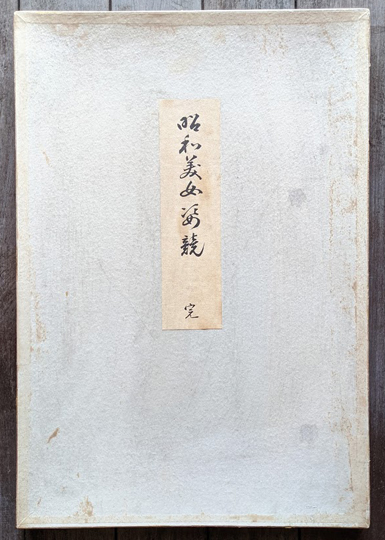 昭和美女姿競
完